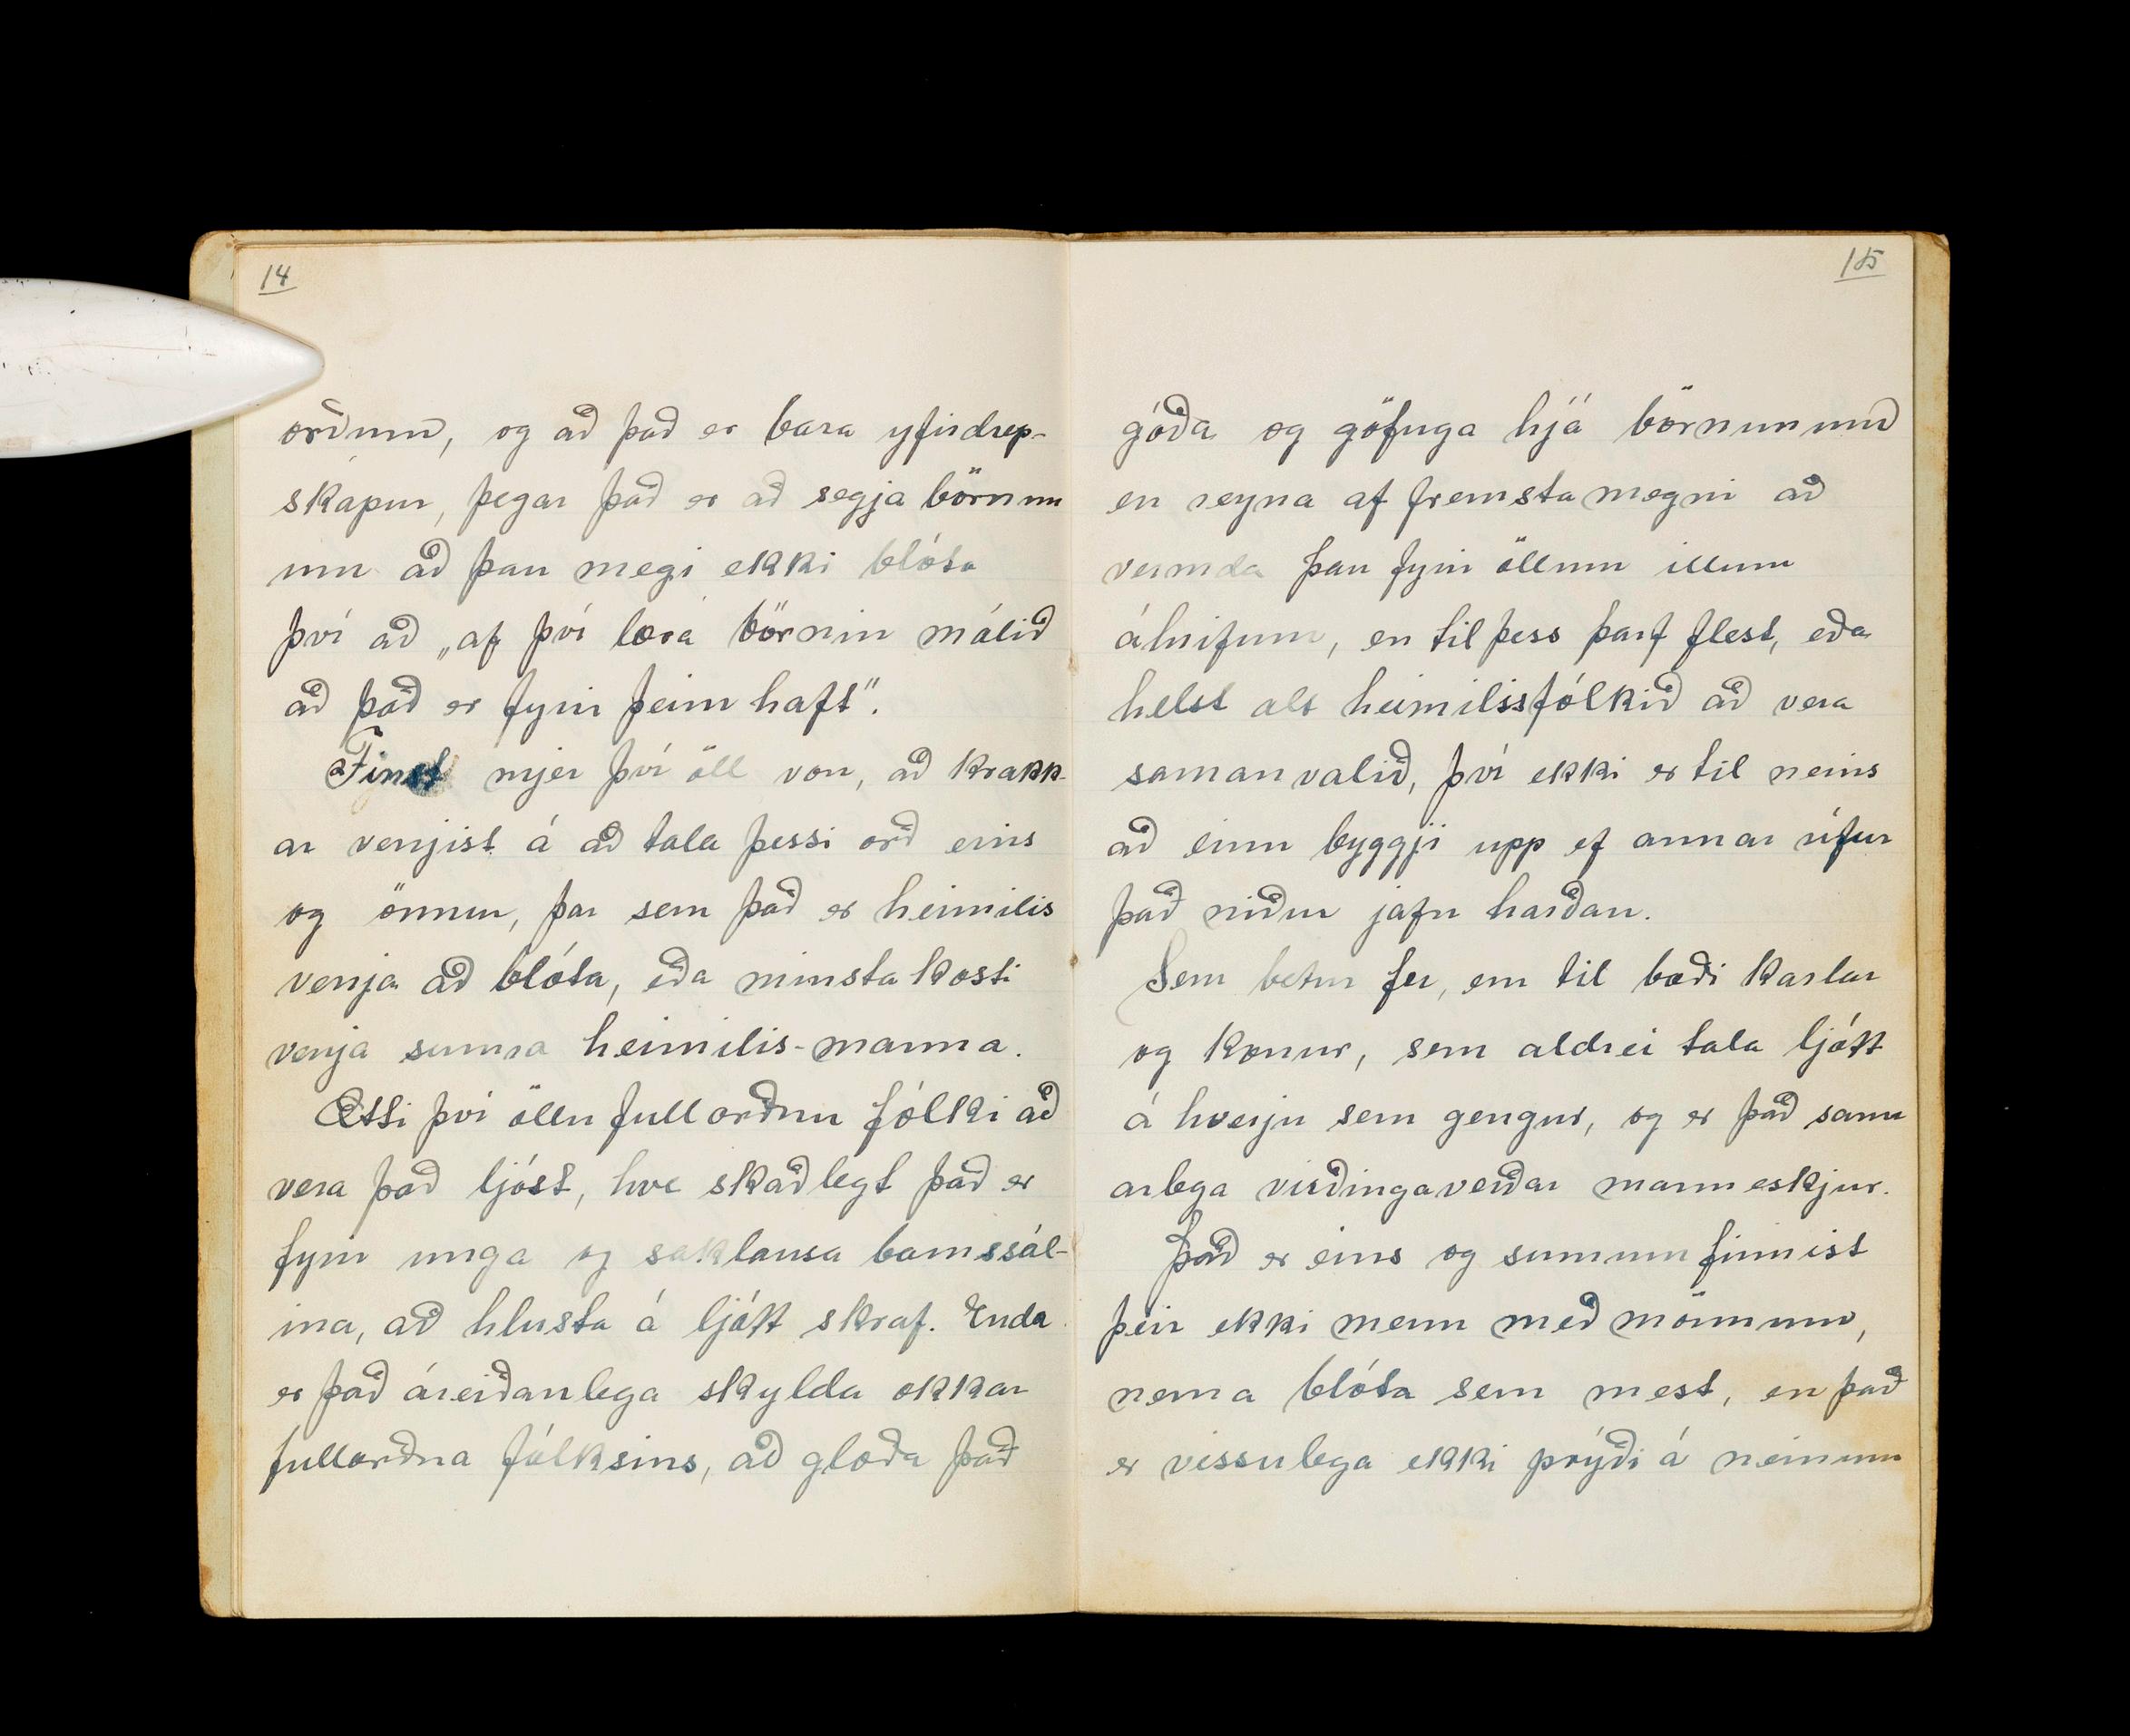 14
orðum, og að það er bara yfirdrep-
skapur, þegar það er að segja börnun
um að þau megi ekki blóta
því að „af því læra börnin málið
að það er fyrir þeim haft".
Finst mjer því öll von, að krakk-
ar venjist á að tala þessi orð eins
og önnur, þar sem það er heimilis
venja að blóta, eða minsta kosti
venja sumra heimilis-manna.
Ætti því öllu fullorðnu fólki að
vera það ljóst, hve skaðlegt það er
fyrir unga og saklausa barnssál-
ina, að hlusta á ljótt skraf. Enda
er það áreiðanlega skylda okkar
fullorðna fólksins, að glæða það
15
góða og göfuga hjá börnunum
en reyna af fremsta megni að
vernda þau fyrir öllum illum
áhrifum, en til þess þarf flest, eða
helst alt heimilisfólkið að vera
saman valið, því ekki er til neins
að einn byggji upp ef annar rífur
það niður jafn harðan.
Sem betur fer, eru til bæði karlar
og konur, sem aldrei tala ljótt
á hverju sem gengur, og er það sann
arlega virðingaverðar manneskjur.
Það er eins og sumum finnist
þeir ekki menn með mönnum,
nema blóta sem mest, en það
er vissulega ekki prýði á neinum